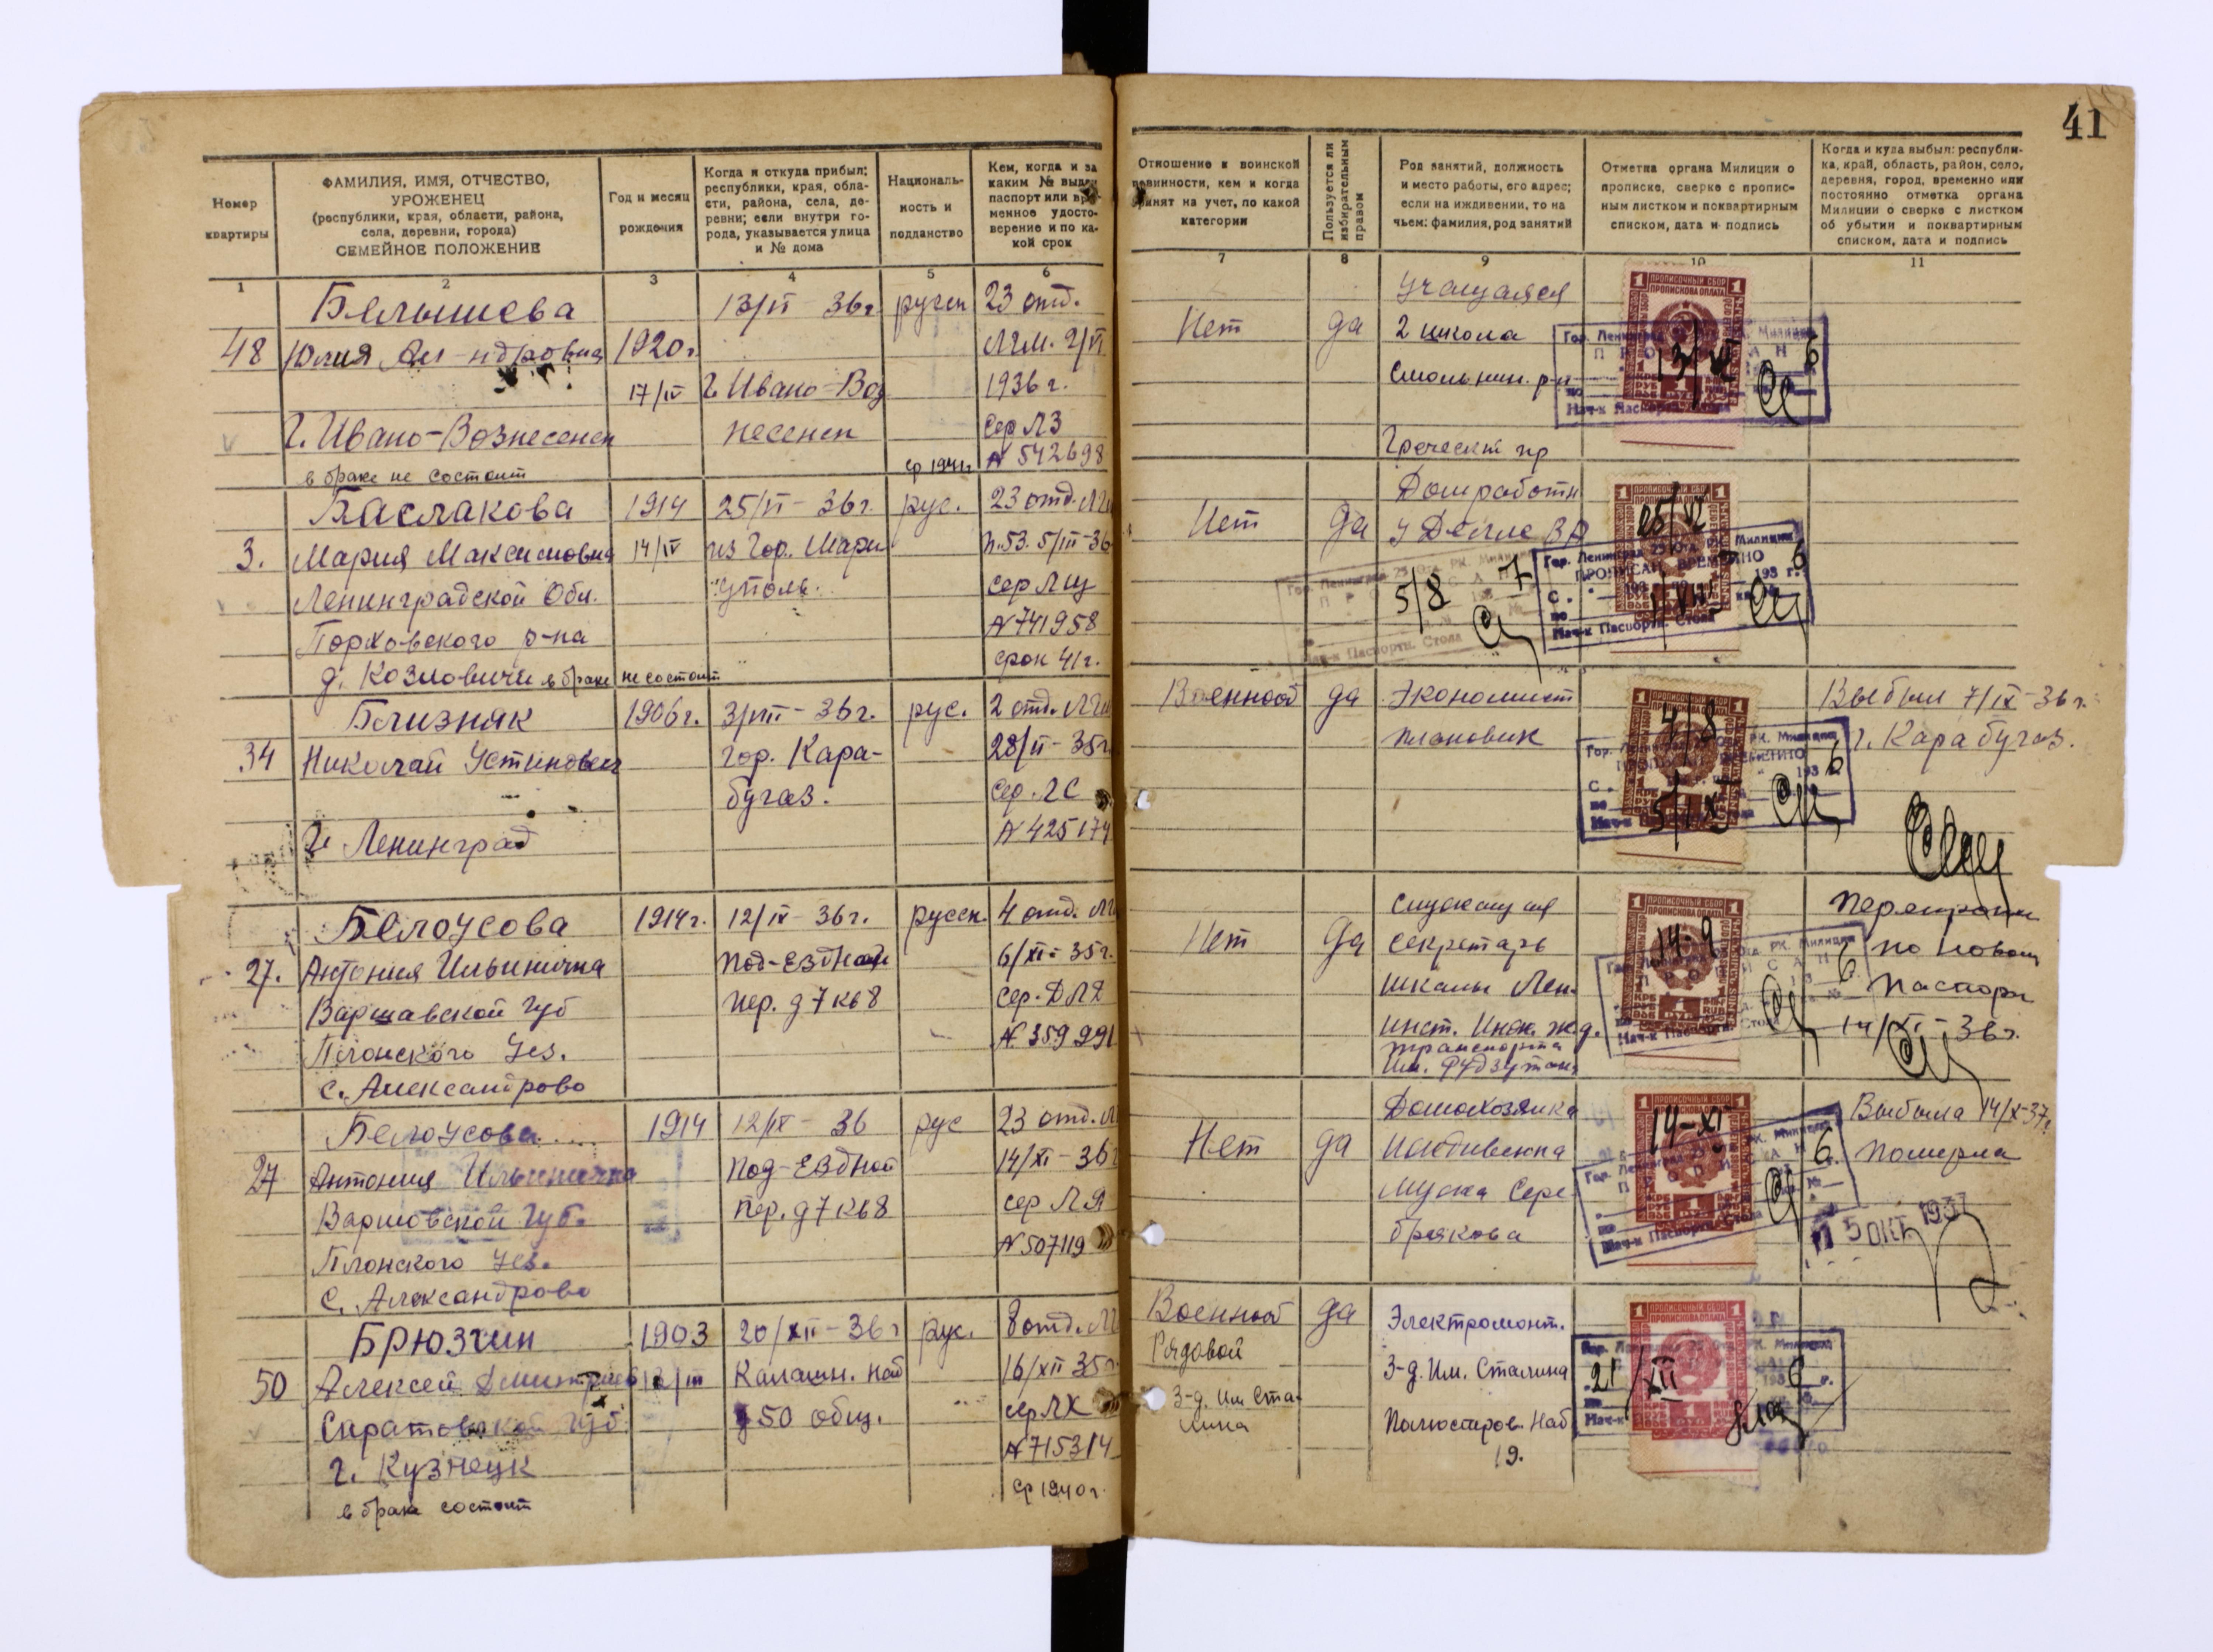 41
Номер квартиры
ФАМИЛИЯ, ИМЯ, ОТЧЕСТВО,
УРОЖЕНЕЦ
(республики, края, области, района,
села, деревни, города)
СЕМЕЙНОЕ ПОЛОЖЕНИЕ
Год и месяц
рождения
Когда и откуда прибыл:
республики, края, обла-
сти, района, села, де-
ревни; если внутри го-
рода, указывается улица
и № дома
Националь-
ность и
подданство
Кем, когда и за
каким № выдан
паспорт или вре-
менное удосто-
верение и по ка-
кой срок
Отношение к воинской
повинности, кем и когда
принят на учет, по какой
категории
Пользуется ли
избирательным
правом
Род занятий, должность
и место работы, его адрес;
если на иждивении, то на
чьем: фамилия, род занятий
Отметка органа Милиции о
прописке, сверке с пропис-
ным листком и поквартирным
списком, дата и подпись
Когда и куда выбыл: республи-
ка, край, область, район, село,
деревня, город, временно или
постоянно отметка органа
Милиции о сверке с листком
об убытии и поквартирным
списком, дата и подпись
1 2 3 4 5 6 7 8 9 10 11
48
Белышева
Юлия Ал-ндровна
г. Ивано-Вознесенск
в браке не состоит
1920г.
17/IV
13/VI - 36г.
г. Ивано-Воз
несенск
русск
23 отд.
ЛГМ. 9/VI
1936 г.
Сер ЛЗ
№ 542698
ср 1941г
Нет
да
Учащаяся
2 школа
Смольнин. р-н
Греческий пр
13/VI
3.
Баслакова
Мария Максимовна
Ленинградской Обл.
Порховского р-на
д. Козловичи в браке не состоит
1914
14/IV
25/VI - 36г.
из Гор. Мари
уполь.
рус.
23 отд. ЛГМ
п. 53. 5/III-36
Сер ЛЩ
№ 741958
срок 41г.
Нет
да
Домработн
5/8 7
25/VI
ПРОПИСАН ВРЕМЕННО
1/VIII
34
Близняк
Николай Устинович
г. Ленинград
1906г.
3/VIII - 36г.
гор. Кара-
бугаз.
рус.
2 отд. ЛГМ
28/II - 35г
Сер. ЛС
№ 425174
Военной
да
Экономист
плановик
4/8
5/IX
Выбыл 7/IX-36г.
г. Кара бугаз.
27.
Белоусова
Антония Ильинична
Варшавской Губ
Плонского Уез.
с. Александрово
1914г.
12/IX - 36г.
Под-Ездной
пер. д 7 кв 8
русск.
4 отд. ЛГ
6/XI - 35г.
Сер. ДЛД
№ 359991
Нет
да
Служащая
Секретарь
школы Лен.
инст. Инж. ж.д.
транспорта
Им. Рудзутака
14-9
по новому
14/XI - 36г.
27
Белоусова
Антония Ильинична
Варшовской Губ.
Плонского Уез.
с. Александрово
1914
12/IX - 36
Под-Ездной
пер. д 7 кв 8
рус
23 отд. Л
14/XI - 36г
сер ЛЯ
№ 507119
Нет
да
Домохозяйка
Иждивенка
Мужа Сере-
брякова
14-XI
Выбыла 14/X-37г.
померла
15 ОКТ 1937
50
Брюзгин
Алексей Дмитриев
Саратовской Губ.
г. Кузнецк
в браке состоит
1903
12/III
20/XII - 36г
Калашн. наб
д 50 общ.
рус.
8 отд. ЛГ
16/XII 35г
сер ЛХ
№ 715314
ср 1940г.
Военной
Рядовой
З-д. Им Ста-
лина
да
Электромонт.
З-д. Им. Сталина
Полюстров. Наб
19.
21/XII